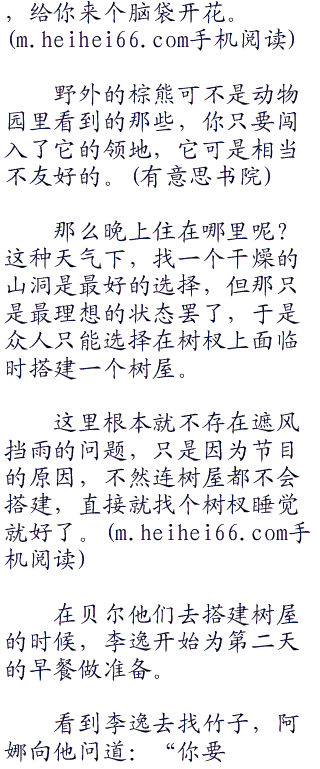 ，给你来个脑袋开花。
(m.heihei66.com手机阅读)
野外的棕熊可不是动物
园里看到的那些，你只要闯
入了它的领地，它可是相当
不友好的。(有意思书院)
那么晚上住在哪里呢？
这种天气下，找一个干燥的
山洞是最好的选择，但那只
是最理想的状态罢了，于是
众人只能选择在树杈上面临
时搭建一个树屋。
这里根本就不存在遮风
挡雨的问题，只是因为节目
的原因，不然连树屋都不会
搭建，直接就找个树杈睡觉
就好了。(m.heihei66.com手
机阅读)
在贝尔他们去搭建树屋
的时候，李逸开始为第二天
的早餐做准备。
看到李逸去找竹子，阿
娜向他问道：“你要